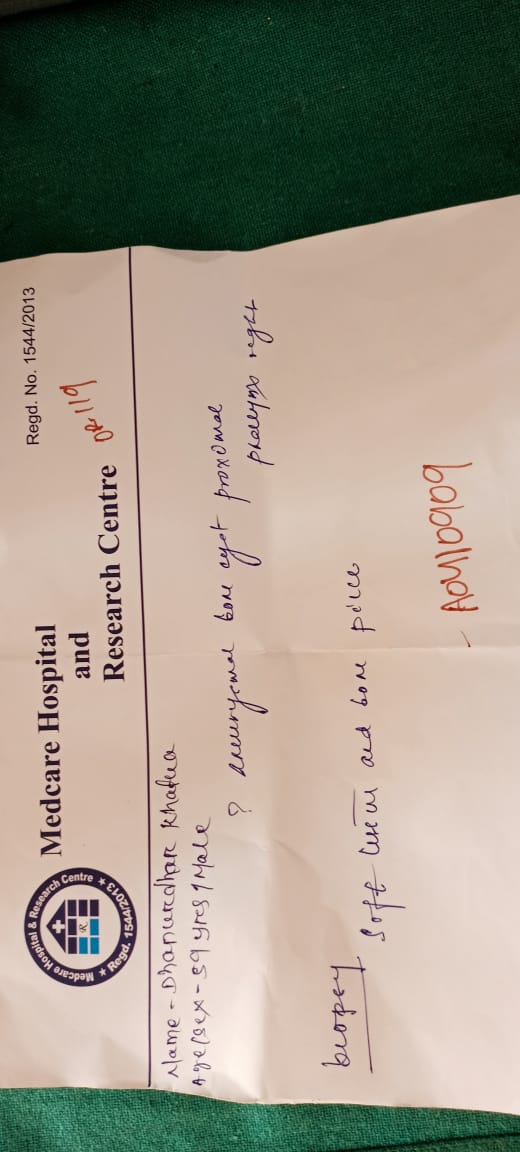 Regd. No. 1544/2013
Medcare Hospital
and
Research Centre
Medcare Hospital & Research Centre
Regd. 1544/2013
R
119
Name - Dhanurdhar Khatua
Age/sex - 59 yrs / Male
? aneurysmal bone cyst proximal
phalynx right
biopsy
Soft and bone